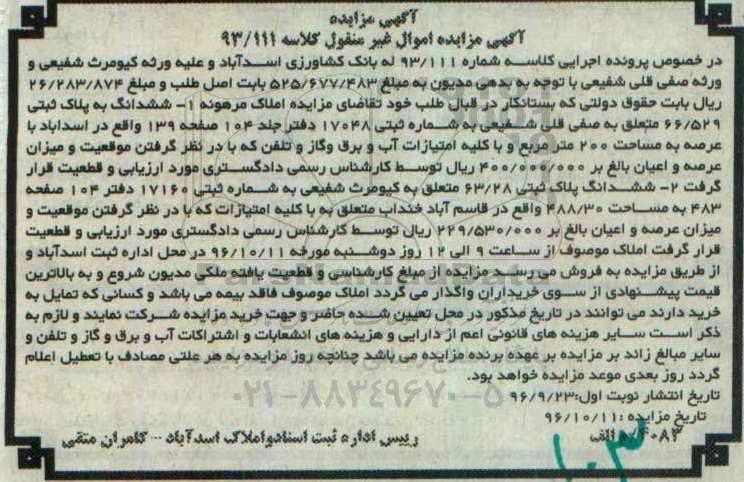 آگهی مزایده
آگهی مزایده اموال غیر منقول کلاسه ۹۳/۱۱۱
در خصوص پرونده اجرایی کلاسه شماره ۹۳/۱۱۱ له بانک کشاورزی اسدآباد و علیه ورثه کیومرث شفیعی و
ورثه صفی قلی شفیعی با توجه به بدهی مدیون به مبلغ ۵۲۵/۶۷۷/۴۸۳ بابت اصل طلب و مبلغ ۲۶/۲۸۳/۸۷۴
ریال بابت حقوق دولتی که بستانکار در قبال طلب خود تقاضای مزایده املاک مرهونه ۱- ششدانگ به پلاک ثبتی
۶۶/۵۲۹ متعلق به صفی قلی شفیعی به شماره ثبتی ۱۷۰۴۸ دفتر جلد ۱۰۴ صفحه ۱۳۹ واقع در اسداباد با
عرصه به مساحت ۲۰۰ متر مربع و با کلیه امتیازات آب و برق وگاز و تلفن که با در نظر گرفتن موقعیت و میزان
عرصه و اعیان بالغ بر ۴۰۰/۰۰۰/۰۰۰ ریال توسط کارشناس رسمی دادگستری مورد ارزیابی و قطعیت قرار
گرفت ۲- ششدانگ پلاک ثبتی ۶۳/۲۸ متعلق به کیومرث شفیعی به شماره ثبتی ۱۷۱۶۰ دفتر ۱۰۴ صفحه
۴۸۳ به مساحت ۴۸۸/۳۰ واقع در قاسم آباد خنداب متعلق به با کلیه امتیازات که با در نظر گرفتن موقعیت و
میزان عرصه و اعیان بالغ بر ۲۲۹/۵۳۰/۰۰۰ ریال توسط کارشناس رسمی دادگستری مورد ارزیابی و قطعیت
قرار گرفت املاک موصوف از ساعت ۹ الی ۱۲ روز دوشنبه مورخه ۹۶/۱۰/۱۱ در محل اداره ثبت اسدآباد و
از طریق مزایده به فروش می رسد مزایده از مبلغ کارشناسی و قطعیت یافته ملکی مدیون شروع و به بالاترین
قیمت پیشنهادی از سوی خریداران واگذار می گردد املاک موصوف فاقد بیمه می باشد و کسانی که تمایل به
خرید دارند می توانند در تاریخ مذکور در محل تعیین شده حاضر و جهت خرید مزایده شرکت نمایند و لازم به
ذکر است سایر هزینه های قانونی اعم از دارایی و هزینه های انشعابات و اشتراکات آب و برق و گاز و تلفن و
سایر مبالغ زائد بر مزایده بر عهده برنده مزایده می باشد چنانچه روز مزایده به هر علتی مصادف با تعطیل اعلام
گردد روز بعدی موعد مزایده خواهد بود.
۰۲۱-۸۸۳۴۹۶۷۰-۵
تاریخ انتشار نوبت اول:۹۶/۹/۲۳
تاریخ مزایده :۹۶/۱۰/۱۱
۴۰۸۳ الف
رییس اداره ثبت اسناد و املاک اسدآباد - کامران متقی